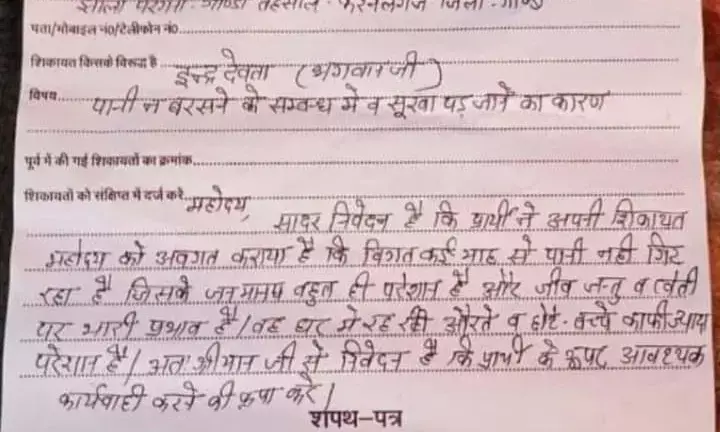 झाला परगना- गोण्डा तहसील - करनलगंज जिला - गोण्डा
पता/मोबाइल नं0/टेलीफोन नं0
शिकायत किसके विरूद्ध है इन्द्र देवता (भगवान जी)
विषय पानी न बरसने के सम्वन्ध मे व सूखा पड़ जाने का कारण
पूर्व में की गई शिकायतों का क्रमांक
शिकायतों को संक्षिप्त में दर्ज करे महोदय,
सादर निवेदन है कि प्रार्थी ने अपनी शिकायत
महोदय को अवगत कराया है कि विगत कई माह से पानी नही गिर
रहा है जिसके जनमानष बहुत ही परेशान है और जीव जन्तु व खेती
पर भारी प्रभाव है / वह घर मे रह रही औरते व छोटे-बच्चे काफी ज्यादा
परेशान है / अतः श्रीमान जी से निवेदन है कि प्रार्थी के ऊपर आवश्यक
कार्यवाही करने की कृपा करे /
शपथ-पत्र